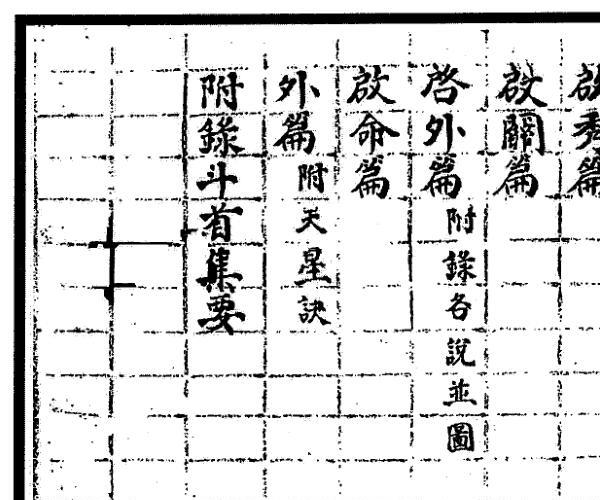 啟秀篇
啟關篇
啓外篇附錄各說並圖
啟命篇
外篇附天星訣
附錄斗首集要